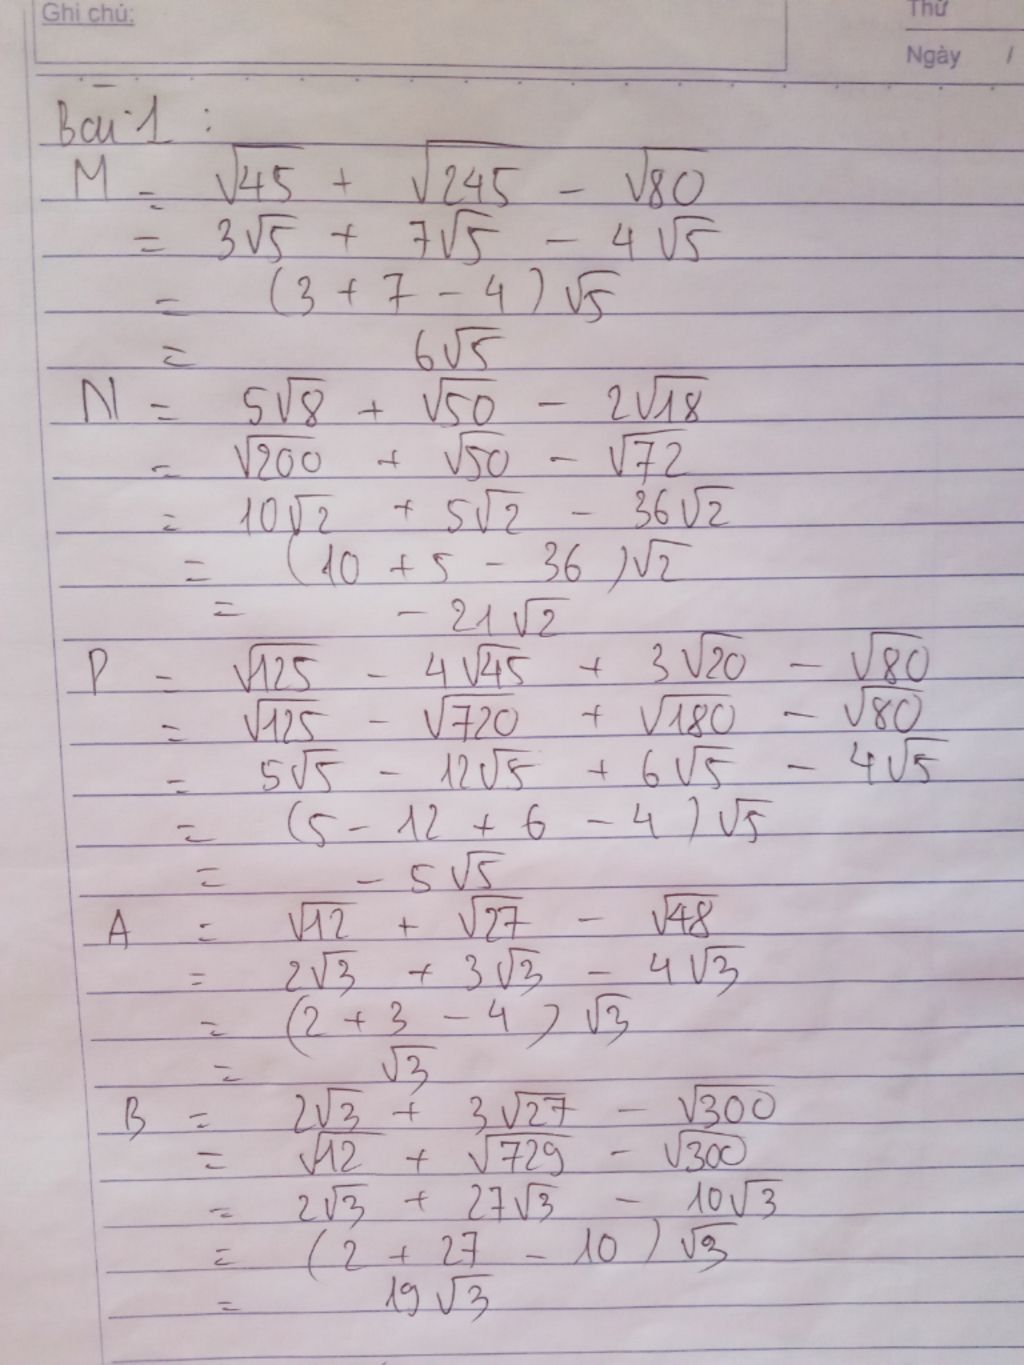 Ghi chú:
Thứ
Ngày /
Bài 1 :
M = √45 + √245 - √80
= 3√5 + 7√5 - 4√5
= (3 + 7 - 4) √5
= 6√5
N = 5√8 + √50 - 2√18
= √200 + √50 - √72
= 10√2 + 5√2 - 36√2
= (10 + 5 - 36)√2
= - 21√2
P = √125 - 4√45 + 3√20 - √80
= √125 - √720 + √180 - √80
= 5√5 - 12√5 + 6√5 - 4√5
= (5 - 12 + 6 - 4) √5
= - 5√5
A = √12 + √27 - √48
= 2√3 + 3√3 - 4√3
= (2 + 3 - 4) √3
= √3
B = 2√3 + 3√27 - √300
= √12 + √729 - √300
= 2√3 + 27√3 - 10√3
= (2 + 27 - 10) √3
= 19√3